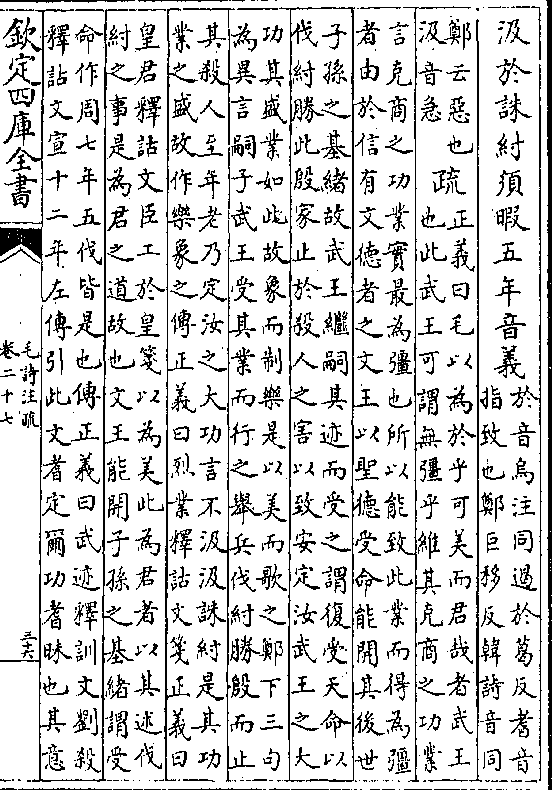 汲於誅紂須暇五年音義於音烏注同遏於葛反耆音
指致也鄭巨移反韓詩音同
鄭云惡也
汲音急
疏正義曰毛以為於乎可美而君哉者武王
也此武王可謂無彊乎維其克商之功業
言克商之功業實最為彊也所以能致此業而得為彊
者由於信有文德者之文王以聖德受命能開其後世
子孫之基緒故武王繼嗣其迹而受之謂復受天命以
伐紂勝此殷家止於殺人之害以致安定汝武王之大
功其盛業如此故象而制樂是以美而歌之鄭下三句
為異言嗣子武王受其業而行之舉兵伐紂勝殷而止
其殺人至年老乃定汝之大功言不汲汲誅紂是其功
業之盛故作樂象之傳正義曰烈業釋詁文箋正義曰
皇君釋詁文臣工於皇箋以為美此為君者以其述伐
紂之事是為君之道故也文王能開子孫之基緒謂受
命作周七年五伐皆是也傳正義曰武迹釋訓文劉殺
釋詁文宣十二年左傳引此文耆定爾功耆昧也其意
欽定四庫全書
毛詩注疏
卷二十七
三六